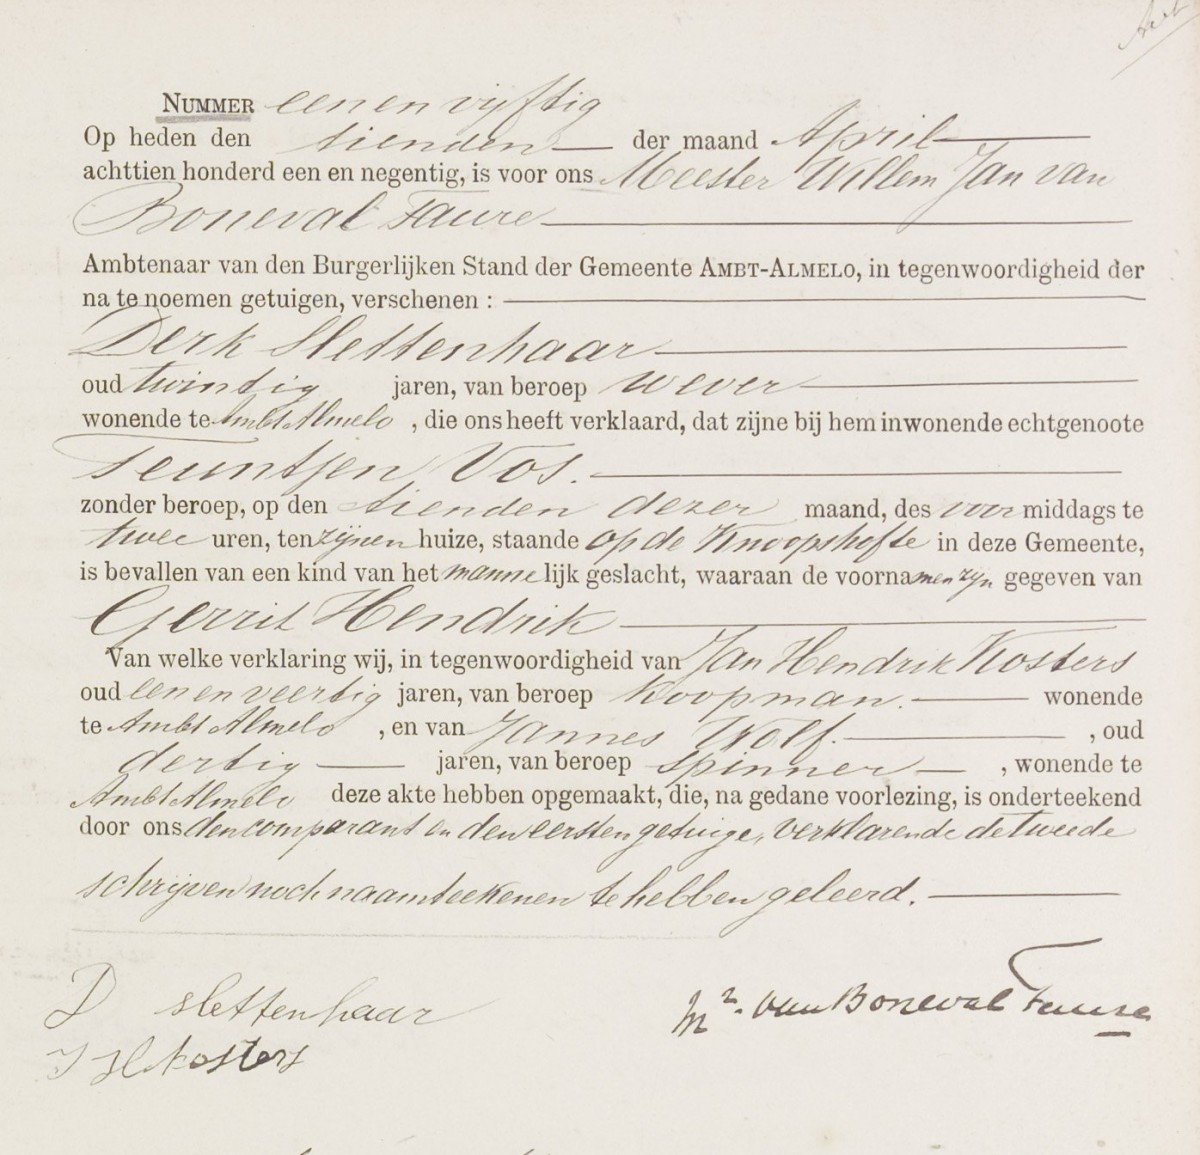 NUMMER eenenvijftig
Op heden den tienden der maand April
achttien honderd een en negentig, is voor ons Meester Willem Jan van
Boneval Faure
Ambtenaar van den Burgerlijken Stand der Gemeente AMBT-ALMELO, in tegenwoordigheid der
na te noemen getuigen, verschenen :
Derk Slettenhaar
oud twintig jaren, van beroep wever
wonende te Ambt Almelo , die ons heeft verklaard, dat zijne bij hem inwonende echtgenoote
Teuntjen Vos.
zonder beroep, op den tienden dezer maand, des voor middags te
twee uren, ten zijnen huize, staande op de Knoopshofte in deze Gemeente,
is bevallen van een kind van het manne lijk geslacht, waaraan de voornamen zijn gegeven van
Gerrit Hendrik
Van welke verklaring wij, in tegenwoordigheid van Jan Hendrik Kosters
oud eenenveertig jaren, van beroep koopman. wonende
te Ambt Almelo , en van Jannes Wolf. , oud
dertig jaren, van beroep spinner , wonende te
Ambt Almelo deze akte hebben opgemaakt, die, na gedane voorlezing, is onderteekend
door ons den comparant en den eersten getuige, verklarende de tweede
schrijven noch naamteekenen te hebben geleerd.
D Slettenhaar
Mr. van Boneval Faure
J H Kosters